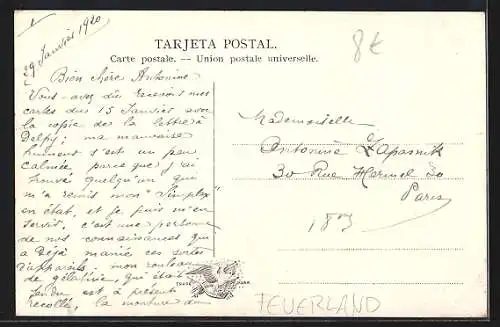 29 Janvier 1920
TARJETA POSTAL.
Carte postale. — Union postale universelle.
8€
Bien chère Antonine
Vous avez dû recevoir mes
cartes du 15 Janvier avec
la copie de la lettre à
Delpy; ma mauvaise
humeur s'est un peu
calmée parce que j'ai
trouvé quelqu'un qui
m'a remis mon "Simplex"
en état, et je puis m'en
servir. c'est une personne
de nos connaissances qui
a déjà maniée ces sortes
d'appareils. mon rouleau
de gélatine, qui était
fendu est à présent
recollé, la monture du
Mademoiselle
Antonine Zapasnik
30 Rue Hermel 30
Paris
18e
TRADE MARK
FEUERLAND